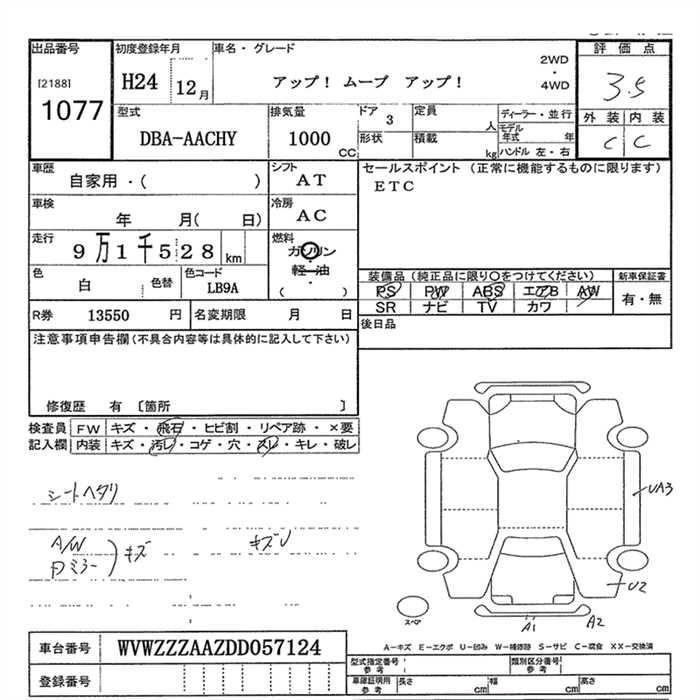 出品番号 初度登録年月 車名・グレード 評価点
[2188] 1077
H24 12月 アップ! ムーブ アップ! 2WD・4WD 3.5
外装 内装
C C
型式 排気量 ドア 3 定員 人 ディーラー・並行
DBA-AACHY 1000 CC 形状 積載 kg モデル年式 年
ハンドル 左・右
車歴 シフト セールスポイント (正常に機能するものに限ります)
自家用・( ) AT ETC
車検 冷房
年 月( 日) AC
走行 燃料
9万1千528 km ガソリン・軽油・( )
色 色替 色コード
白 LB9A
装備品 (純正品に限り○をつけてください) 新車保証書
PS PW ABS エアB AW 有・無
SR ナビ TV カワ
R券 13550 円 名変期限 月 日 後日品
注意事項申告欄 (不具合内容等は具体的に記入して下さい)
修復歴 有 〔箇所 〕
検査員 FW キズ・飛石・ヒビ割・リペア跡・×要
記入欄 内装 キズ・汚レ・コゲ・穴・スレ・キレ・破レ
シートヘタリ
A/W
Dミラー
キズ
キズU
UA3
U2
スペア
A1
A2
車台番号 WVWZZZAAZDD057124
A-キズ E-エクボ U-凹み W-補修跡 S-サビ C-腐食 XX-交換済
登録番号
型式指定番号 参考 類別区分番号 参考
車庫証明用 参考 長さ cm 幅 cm 高さ cm